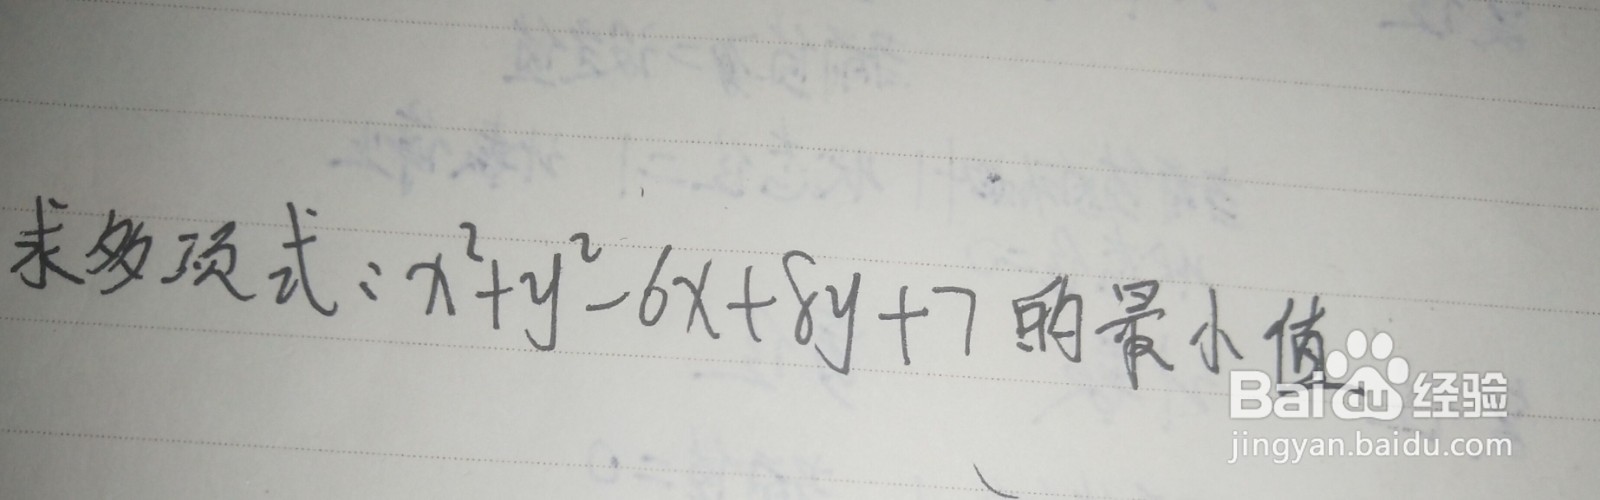 求多项式：x²+y²-6x+8y+7的最小值
Baidu经验
jingyan.baidu.com